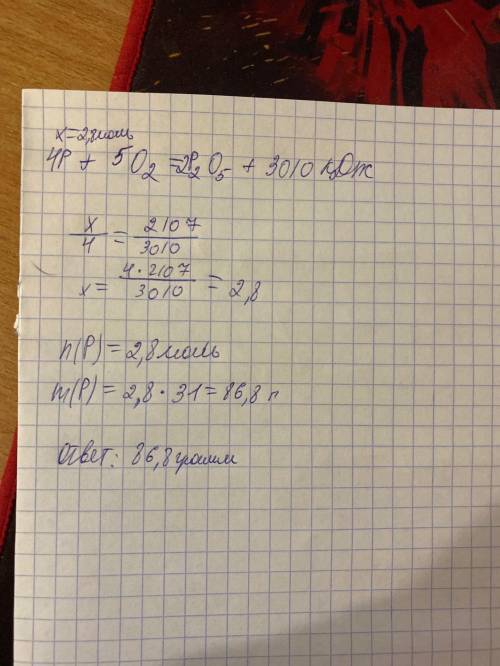 x=2,8моль
4P + 5O2 =2P2O5 + 3010 кДж
x/4 = 2107/3010
x= 4·2107/3010 = 2,8
n(P)=2,8моль
m(P)= 2,8·31=86,8 г
Ответ: 86,8грамм